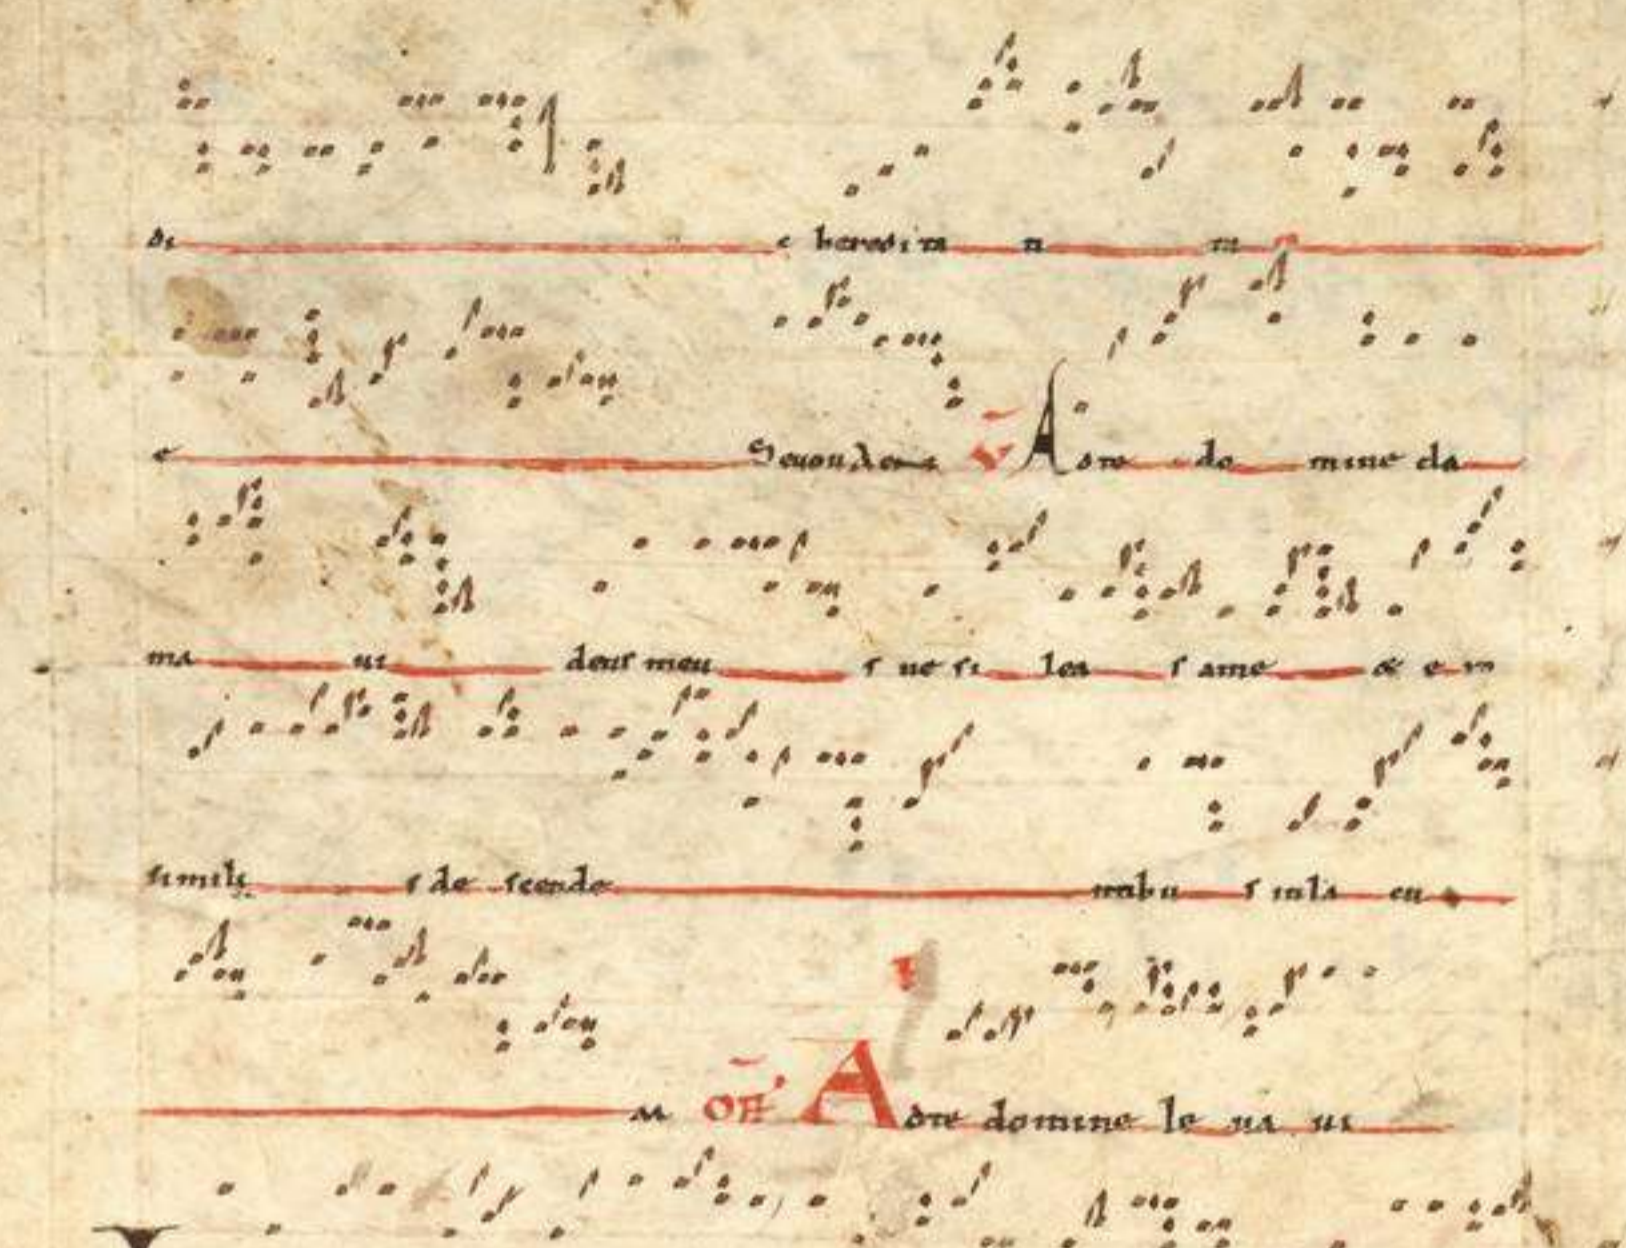 di c heredi ta ti tu
e Seuouae V Ad te do mine cla
ma ui deus meu s ne si lea s a me & e ro
simili s de scende ntibu s in la cu
m OFF Ad te domine le ua ui